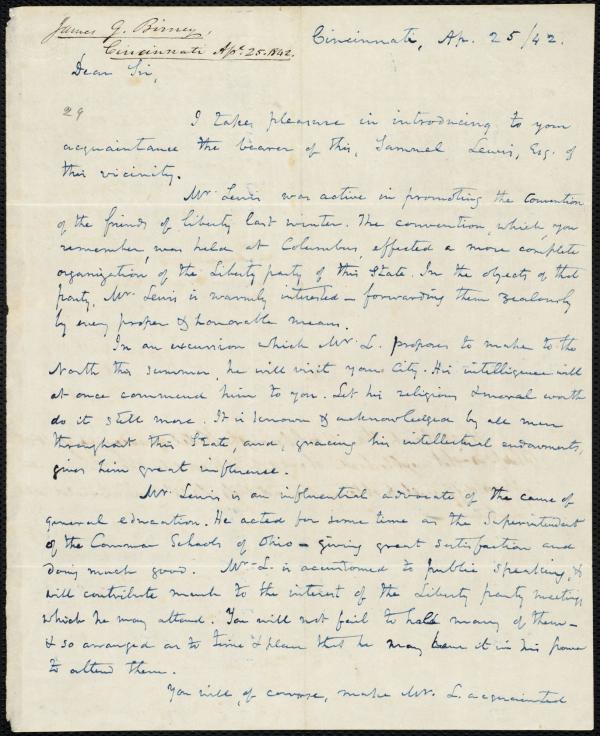 James G. Birney,
Cincinnati Apr. 25. 1842.
Cincinnati, Ap. 25/42.
Dear Sir,
29
I take pleasure in introducing to your
acquaintance the bearer of this, Samuel Lewis, Esq. of
this vicinity.
Mr. Lewis was active in promoting the Convention
of the friends of Liberty last winter. The convention, which, you
remember, was held at Columbus, effected a more complete
organization of the Liberty party of this State. In the objects of that
party, Mr. Lewis is warmly interested – forwarding them zealously
by every proper & honorable means.
In an excursion which Mr. L. proposes to make to the
North this summer, he will visit your City. His intelligence will
at once commend him to you. Let his religious & moral worth
do it still more. It is known & acknowledged by all men
throughout this State, and, gracing his intellectual endowments,
gives him great influence.
Mr. Lewis is an influential advocate of the cause of
general education. He acted for some time as the Superintendent
of the Common Schools of Ohio – giving great satisfaction and
doing much good. Mr. L. is accustomed to public speaking, &
will contribute much to the interest of the Liberty party meetings
which he may attend. You will not fail to hold many of them –
& so arranged as to time & place that he may have it in his power
to attend them.
You will, of course, make Mr. L. acquainted